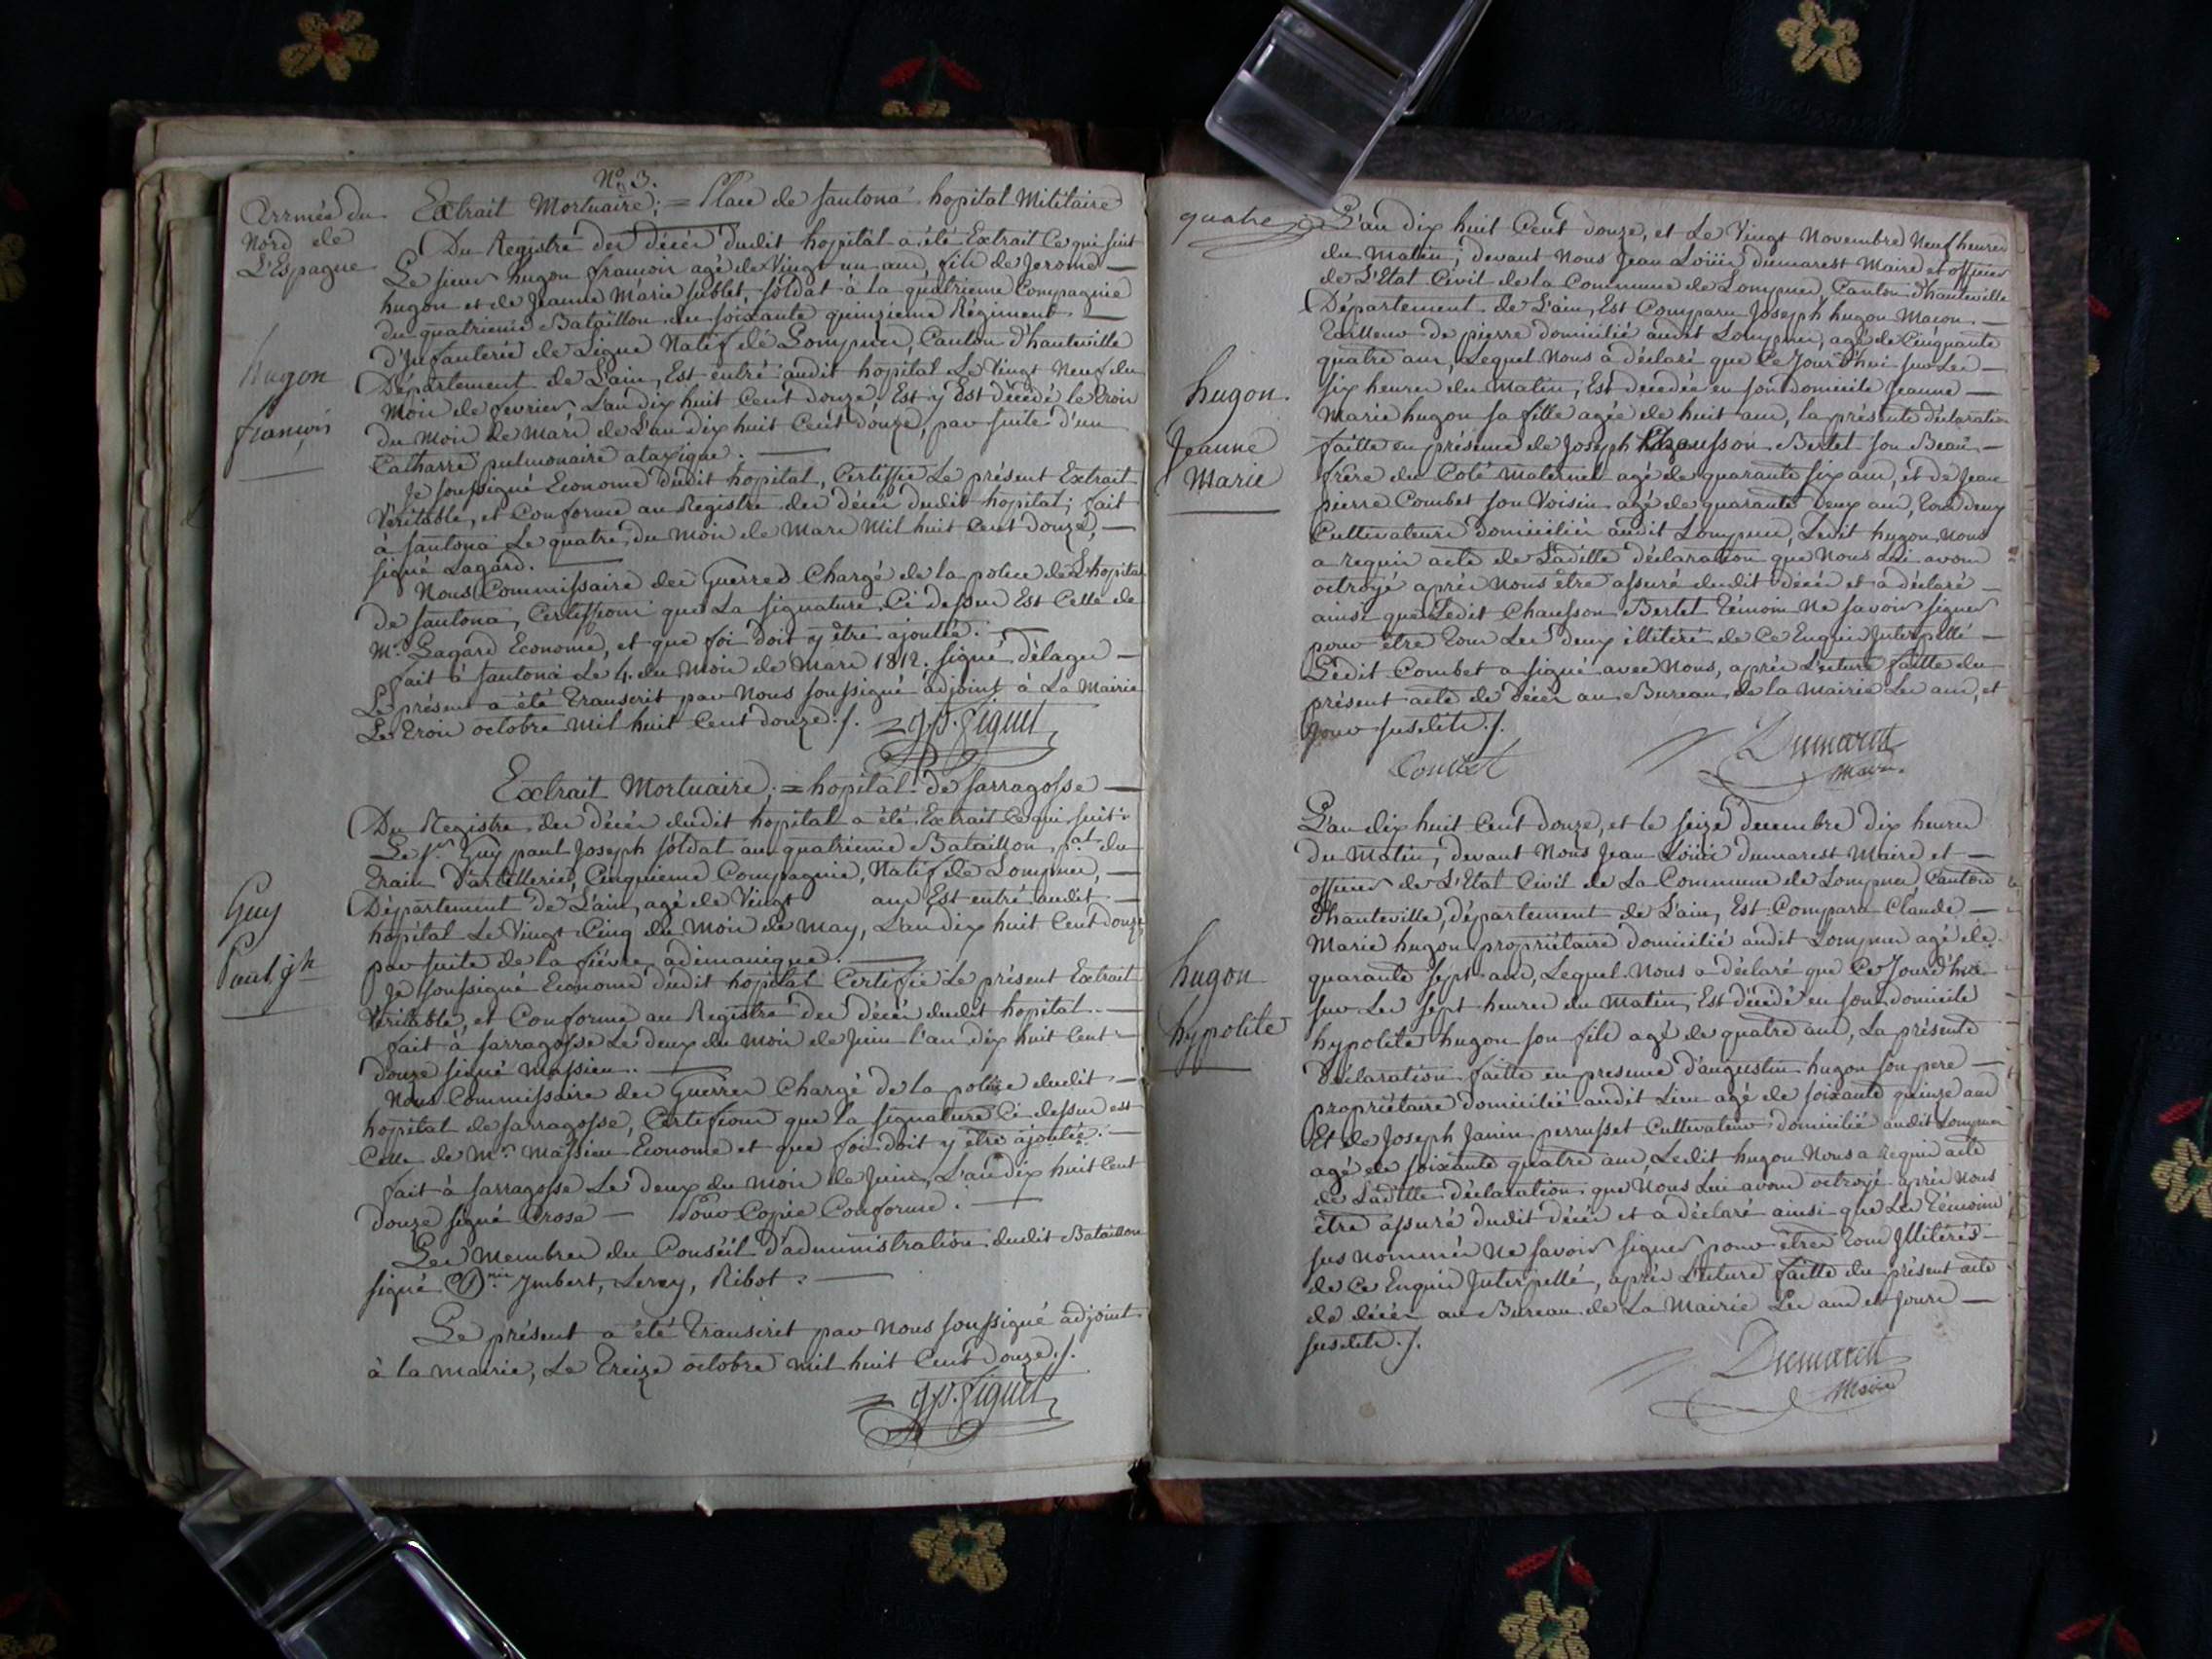 Armée du
Nord de
L'Espagne
N.° 3.
Extrait Mortuaire; = Place de santona hopital Militaire
Du Registre des décès dudit hopital a été Extrait Ce qui suit
Le sieur hugon françois agé de Vingt un ans, fils de Jerome —
hugon et de Jeanne Marie sublet, soldat à la quatrieme Compagnie
du quatrieme Bataillon du soixante quinzieme Régiment —
d'Infanterie de Ligne Natif de Lompnes, Canton d'hauteville
hugon
françois
Département de L'ain, Est entré audit hopital Le Vingt Neuf du
Mois de fevrier, L'an dix huit Cent douze, Est y Est décédé le trois
du Mois de Mars de L'an dix huit Cent douze, par suite d'un
Catharre pulmonaire ataxique. —
Je soussigné Econome dudit hopital, Certiffie Le présent Extrait
Véritable, et Conforme au Registre des décès dudit hopital; fait
à santona Le quatre du Mois de Mars Mil huit Cent douze, —
signé Lagard. —
Nous Commissaire des Guerres Chargé de la police de L'hopital
de santona, Certiffions que La signature Ci dessus Est Celle de
Mr. Lagard Econome, et que foi doit y être ajoutée. —
fait à santona Le 4 du Mois de Mars 1812. signé délages —
Le présent a été transcrit par Nous soussigné adjoint à La Mairie
Le trois octobre Mil huit Cent douze./. = JP. Figuet
Extrait Mortuaire; = hopital de sarragosse —
Du Registre des décès dudit hopital a été Extrait Ce qui suit:
Le sr. Guy paul Joseph soldat au quatrieme Bataillon pal. du
train D'artillerie, Cinquieme Compagnie, Natif de Lompnes, —
Guy
Paul jh
Département de L'ain, agé de Vingt ans Est entré audit —
hopital Le Vingt Cinq du Mois de May, L'an dix huit Cent douze
par suite de la fièvre adinamique. —
Je soussigné Econome dudit hopital Certifie Le présent Extrait
Veritable, et Conforme au Registre des décès dudit hopital. —
fait à sarragosse Le deux du Mois de Juin l'an dix huit Cent
douze signé Massieu. —
Nous Commissaire des Guerres Chargé de la police dudit —
hopital de sarragosse, Certifions que la signature Ci dessus est
Celle de Mr. Massieu Econome et que foi doit y être ajoutée. —
fait à sarragosse Le deux du Mois de Juin, L'an dix huit Cent
douze signé Crose — Pour Copie Conforme. —
Les Membres du Conséil d'administration dudit Bataillon
signé Imbert, Leroy, Ribot. —
Le présent a été transcrit par Nous soussigné adjoint
à la mairie, Le treize octobre mil huit Cent douze./.
= JP. Figuet
quatre
L'an dix huit Cent douze, et Le Vingt Novembre Neuf heures
du Matin, devant Nous Jean Loüis dumarest Maire et officier
de L'Etat Civil de la Commune de Lompnes, Canton d'hauteville
Département de L'ain, Est Comparu Joseph hugon Macon —
tailleur de pierre domicilié audit Lompnes, agé de Cinquante
quatre ans, Lequel Nous a déclaré que Ce Jourd'hui sur Les —
hugon.
Jeanne
Marie
six heures du Matin, Est décedée en son domicile Jeanne —
Marie hugon sa fille agée de huit ans, la présente déclaration
faitte en présence de Joseph Chausson Bertet son Beau —
frère du Coté Maternel agé de quarante six ans, et de Jean
pierre Combet son Voisin agé de quarante deux ans, tous deux
Cultivateurs domiciliés audit Lompnes, Ledit hugon Nous
a requis acte de Laditte déclaration que Nous Lui avons
octroyé après Nous être assuré dudit décès et a déclaré —
ainsi que Ledit Chausson Bertet témoin Ne savoir signer
pour être tous Les deux illiteré de Ce Enquis Interpellé —
Ledit Combet a signé avec Nous, après Lecture faitte du
présent acte de décès au Bureau de la Mairie Les ans, et
Jour susdits./.
Combet
Dumarest
Maire.
L'an dix huit Cent douze, et le seize decembre dix heures
du Matin, devant Nous Jean Loüis dumarest Maire et —
officier de L'Etat Civil de La Commune de Lompnes, Canton
d'hauteville, département de L'ain, Est Comparu Claude —
hugon
hypolite
Marie hugon propriétaire domicilié audit Lompnes agé de
quarante sept ans, Lequel Nous a déclaré que Ce Jourd'hui
sur Les sept heures du Matin, Est décédé en son domicile
hypolite hugon son fils agé de quatre ans, La présente
déclaration faitte en presence d'augustin hugon son pere —
propriétaire domicilié audit Lieu agé de soixante quinze ans
Et de Joseph Janin perrusset Cultivateur domicilié audit Lompnes
agé de soixante quatre ans, Ledit hugon Nous a Requis acte
de Laditte déclaration que Nous Lui avons octroyé après Nous
être assuré dudit décès et a déclaré ainsi que Les témoins
sus nommés Ne savoir signer pour être tous Illitérés —
de Ce Enquis Interpellé, après Lecture faitte du présent acte
de décès au Bureau de La Mairie Les ans et Jours —
susdits./.
Dumarest
Maire